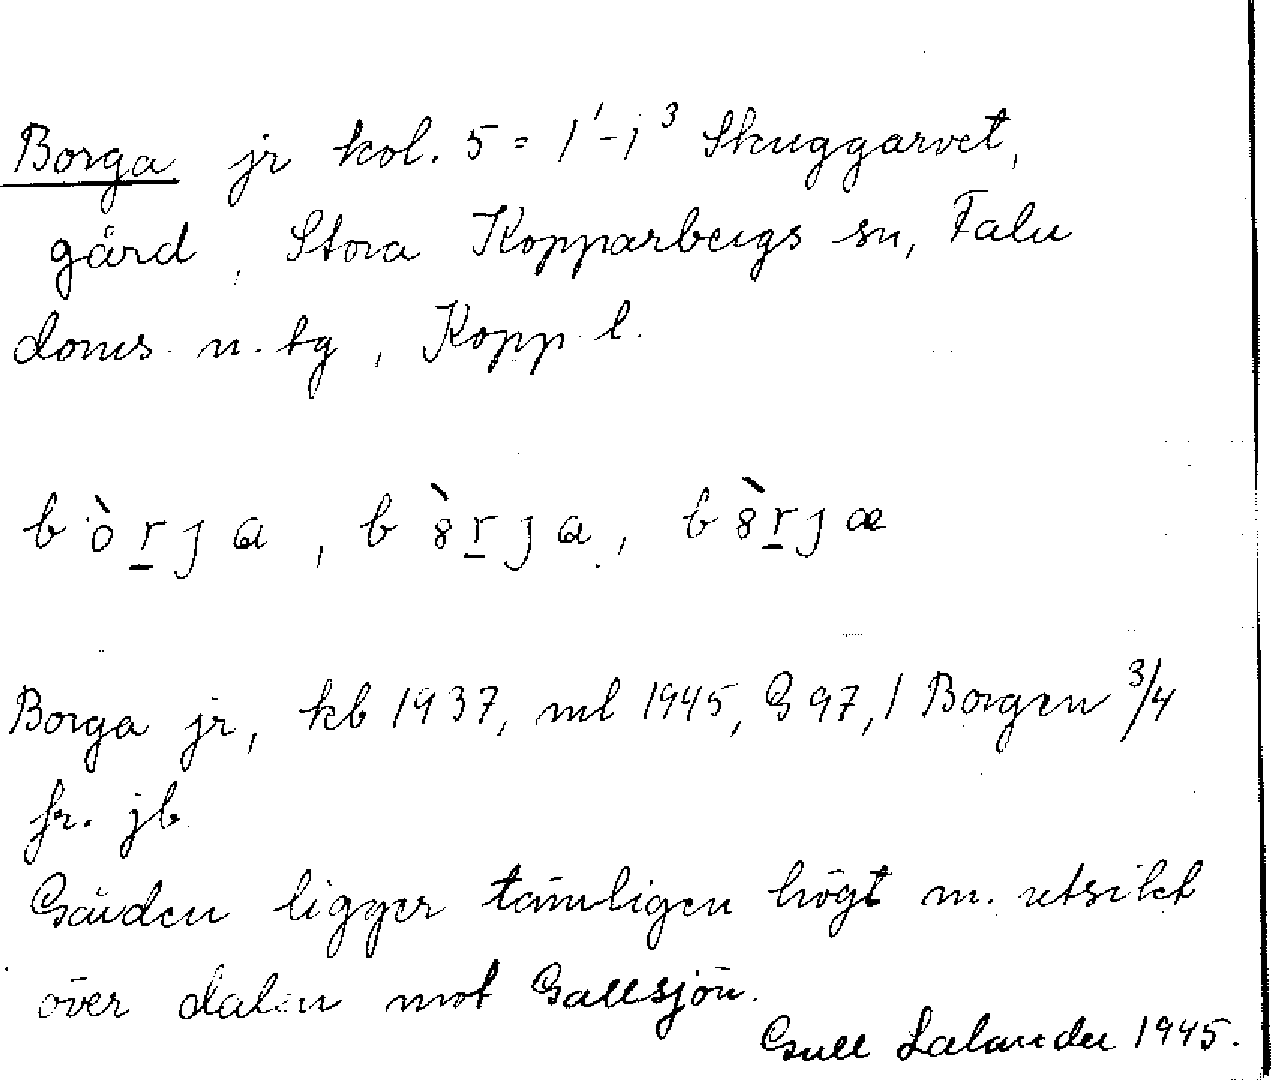 Borga jr kol. 5 = 1¹-1³ Skuggarvet,
gård, Stora Kopparbergs sn, Falu
doms. n. tg, Kopp. l.
bòr̲ja, b8̀r̲ja, b8̀r̲jæ
Borga jr, kb 1937, ml 1945, G 97, / Borgen 3/4
fr. jb
Gården ligger tämligen högt m. utsikt
över dalen mot Gallsjön.
Gull Lalander 1945.